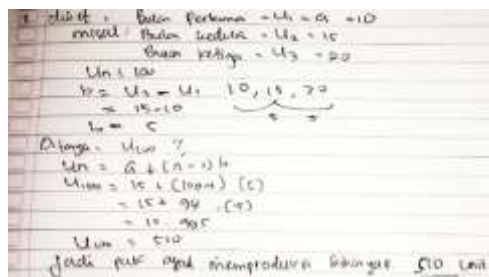 diket : Bulan Pertama = U1 = a = 10
misal : Bulan kedua = U2 = 15
Bulan ketiga = U3 = 20
Un = 100
b = U2 - U1 10, 15, 20
= 15-10 5 5
b = 5
Ditanya = U100 ?
Un = a + (n-1) b
U100 = 15 + (100-1) (5)
= 15 + 94 . (5)
U100 = 510
Jadi pak memproduksi sebanyak 510 unit